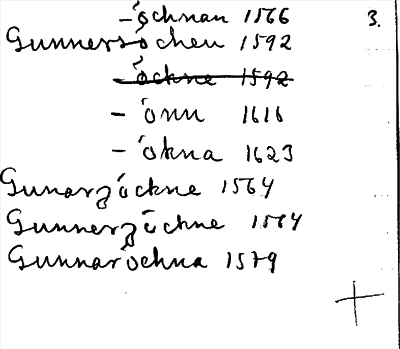 -öchnan 1566 3.
Gunnersöchen 1592
-öckne 1592
- önn 1616
- ökna 1623
Gunarzöckne 1564
Gunnerzöckne 1564
Gunnaröchna 1579